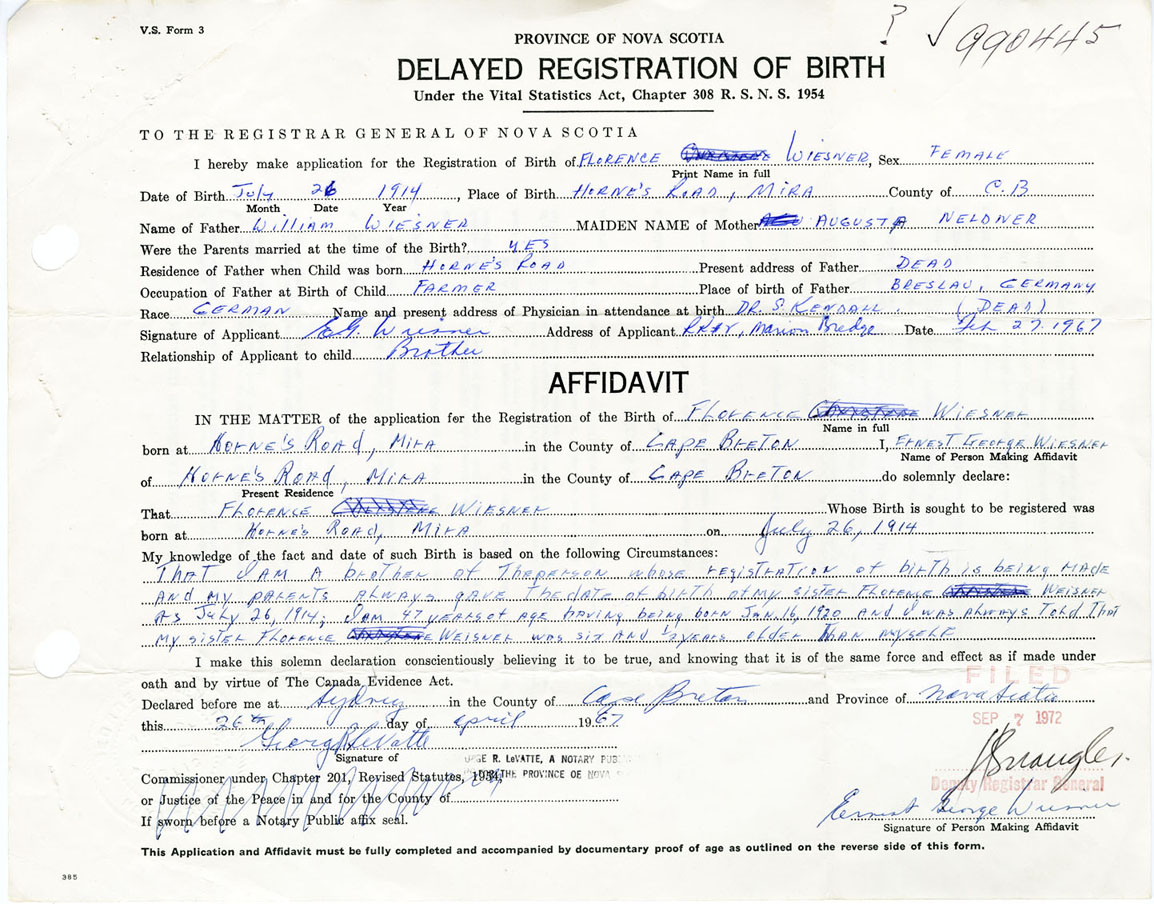 V.S. Form 3
? ✓ 990445
PROVINCE OF NOVA SCOTIA
DELAYED REGISTRATION OF BIRTH
Under the Vital Statistics Act, Chapter 308 R. S. N. S. 1954
TO THE REGISTRAR GENERAL OF NOVA SCOTIA
I hereby make application for the Registration of Birth of FLORENCE WIESNER, Sex FEMALE
Print Name in full
Date of Birth July 26 1914, Place of Birth HORNE'S ROAD, MIRA County of C.B
Month Date Year
Name of Father WILLIAM WIESNER MAIDEN NAME of Mother AUGUSTA NELDNER
Were the Parents married at the time of the Birth? YES
Residence of Father when Child was born HORNE'S ROAD Present address of Father DEAD
Occupation of Father at Birth of Child FARMER Place of birth of Father BRESLAU, GERMANY
Race GERMAN Name and present address of Physician in attendance at birth DR. S. KENDALL. (DEAD)
Signature of Applicant E.G. Wiesner Address of Applicant Marion Bridge Date Feb 27 1967
Relationship of Applicant to child Brother
AFFIDAVIT
IN THE MATTER of the application for the Registration of the Birth of FLORENCE WIESNER
Name in full
born at HORNE'S ROAD, MIRA in the County of CAPE BRETON I, ERNEST GEORGE WIESNER
Name of Person Making Affidavit
of HORNE'S ROAD, MIRA in the County of CAPE BRETON do solemnly declare:
Present Residence
That FLORENCE WIESNER Whose Birth is sought to be registered was
born at HORNE'S ROAD, MIRA on July 26, 1914
My knowledge of the fact and date of such Birth is based on the following Circumstances:
THAT I AM A brother of The person whose registration of birth is being MADE
AND MY PARENTS ALWAYS gave The date of birth of my sister Florence WEISNER
AS July 26, 1914, I AM 47 years of age having being born JAN. 16, 1920 AND I WAS ALWAYS Told That
my sister FLORENCE WEISNER was six AND 1/2 years older Than myself
I make this solemn declaration conscientiously believing it to be true, and knowing that it is of the same force and effect as if made under
oath and by virtue of The Canada Evidence Act.
FILED
Declared before me at Sydney in the County of Cape Breton and Province of Nova Scotia
this 26th day of April 1967
SEP 7 1972
George R LeVatte
Signature of
GE R. LeVATTE, A NOTARY PUB
FOR THE PROVINCE OF NOVA
Commissioner under Chapter 201, Revised Statutes,
Deputy Registrar General
or Justice of the Peace in and for the County of
Ernest George Wiesner
If sworn before a Notary Public affix seal.
Signature of Person Making Affidavit
This Application and Affidavit must be fully completed and accompanied by documentary proof of age as outlined on the reverse side of this form.
385